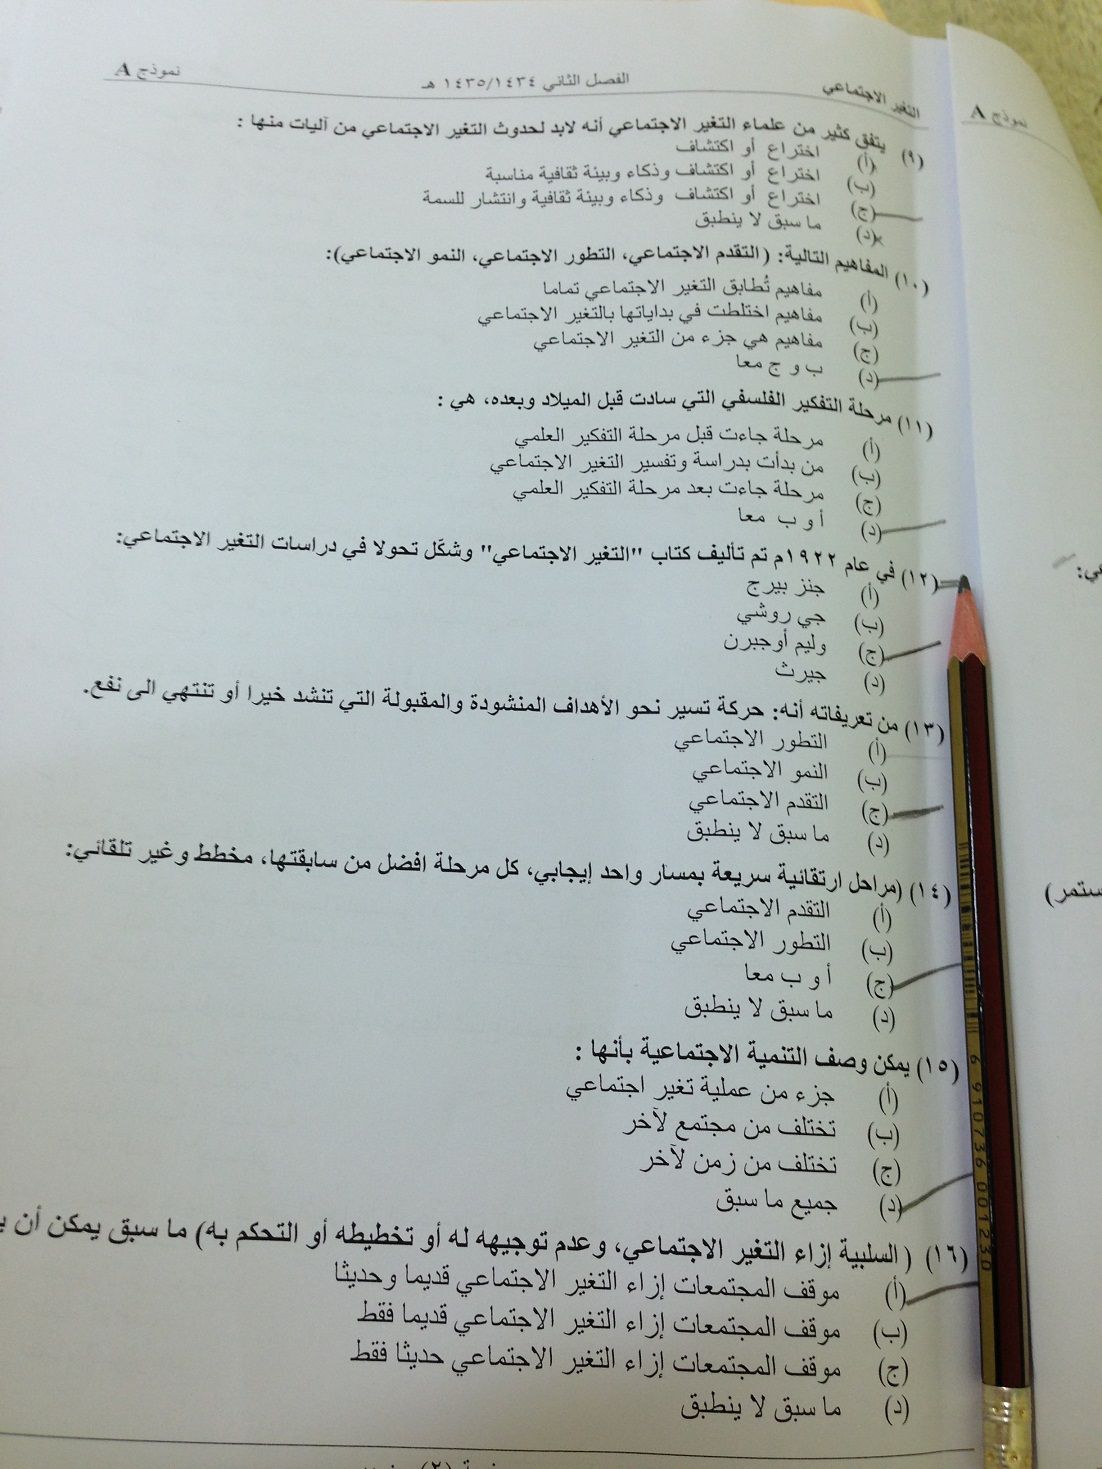 التغير الاجتماعي الفصل الثاني ١٤٣٥/١٤٣٤ هـ نموذج A
نموذج A
(٩) يتفق كثير من علماء التغير الاجتماعي أنه لابد لحدوث التغير الاجتماعي من آليات منها :
(أ) اختراع أو اكتشاف
(ب) اختراع أو اكتشاف وذكاء وبيئة ثقافية مناسبة
(ج) اختراع أو اكتشاف وذكاء وبيئة ثقافية وانتشار للسمة
(د) ما سبق لا ينطبق
(١٠) المفاهيم التالية: (التقدم الاجتماعي، التطور الاجتماعي، النمو الاجتماعي):
(أ) مفاهيم تُطابق التغير الاجتماعي تماما
(ب) مفاهيم اختلطت في بداياتها بالتغير الاجتماعي
(ج) مفاهيم هي جزء من التغير الاجتماعي
(د) ب و ج معا
(١١) مرحلة التفكير الفلسفي التي سادت قبل الميلاد وبعده، هي :
(أ) مرحلة جاءت قبل مرحلة التفكير العلمي
(ب) من بدأت بدراسة وتفسير التغير الاجتماعي
(ج) مرحلة جاءت بعد مرحلة التفكير العلمي
(د) أ و ب معا
(١٢) في عام ١٩٢٢م تم تأليف كتاب "التغير الاجتماعي" وشكَّل تحولا في دراسات التغير الاجتماعي:
(أ) جنز بيرج
(ب) جي روشي
(ج) وليم أوجبرن
(د) جيرث
(١٣) من تعريفاته أنه: حركة تسير نحو الأهداف المنشودة والمقبولة التي تنشد خيرا أو تنتهي الى نفع.
(أ) التطور الاجتماعي
(ب) النمو الاجتماعي
(ج) التقدم الاجتماعي
(د) ما سبق لا ينطبق
(١٤) (مراحل ارتقائية سريعة بمسار واحد إيجابي، كل مرحلة افضل من سابقتها، مخطط وغير تلقائي:
(أ) التقدم الاجتماعي
(ب) التطور الاجتماعي
(ج) أ و ب معا
(د) ما سبق لا ينطبق
(١٥) يمكن وصف التنمية الاجتماعية بأنها :
(أ) جزء من عملية تغير اجتماعي
(ب) تختلف من مجتمع لآخر
(ج) تختلف من زمن لآخر
(د) جميع ما سبق
(١٦) ( السلبية إزاء التغير الاجتماعي، وعدم توجيهه له أو تخطيطه أو التحكم به) ما سبق يمكن أن
(أ) موقف المجتمعات إزاء التغير الاجتماعي قديما وحديثا
(ب) موقف المجتمعات إزاء التغير الاجتماعي قديما فقط
(ج) موقف المجتمعات إزاء التغير الاجتماعي حديثا فقط
(د) ما سبق لا ينطبق
6 910736 001230